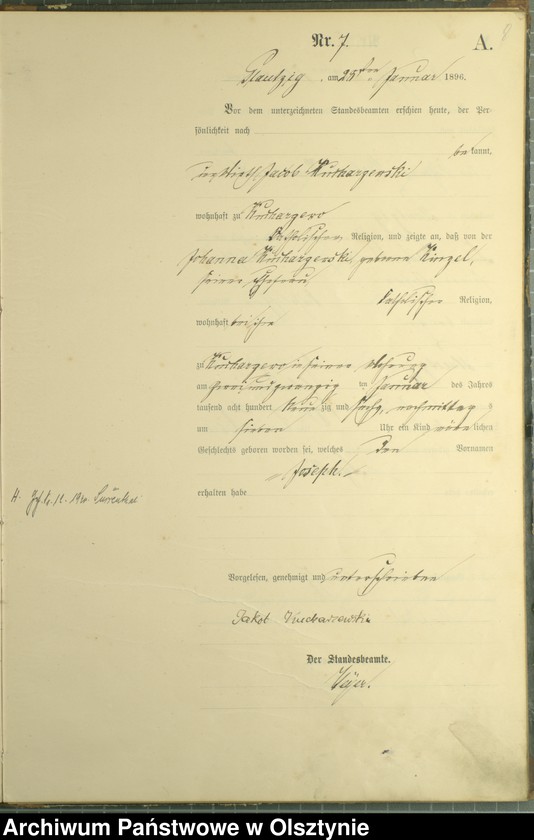 Nr. 7.
A.
8
am 25ten Januar 1896.
Vor dem unterzeichneten Standesbeamten erschien heute, der Per-
sönlichkeit nach
bekannt,
Jacob Kucharzewski
wohnhaft zu Kucharzewo
katholischer Religion, und zeigte an, daß von der
Johanna Kucharzewski, geborene Kinzel,
seiner Ehefrau
katholischer Religion,
wohnhaft bei ihm
zu Kucharzewo in seiner Wohnung
am zwei und zwanzig ten Januar des Jahres
tausend acht hundert neunzig und sechs, nachmittag s
um sieben Uhr ein Kind männlichen
Geschlechts geboren worden sei, welches den Vornamen
Joseph.
erhalten habe
H.
Vorgelesen, genehmigt und unterschrieben
Jakob Kucharzewski
Der Standesbeamte.
Archiwum Państwowe w Olsztynie